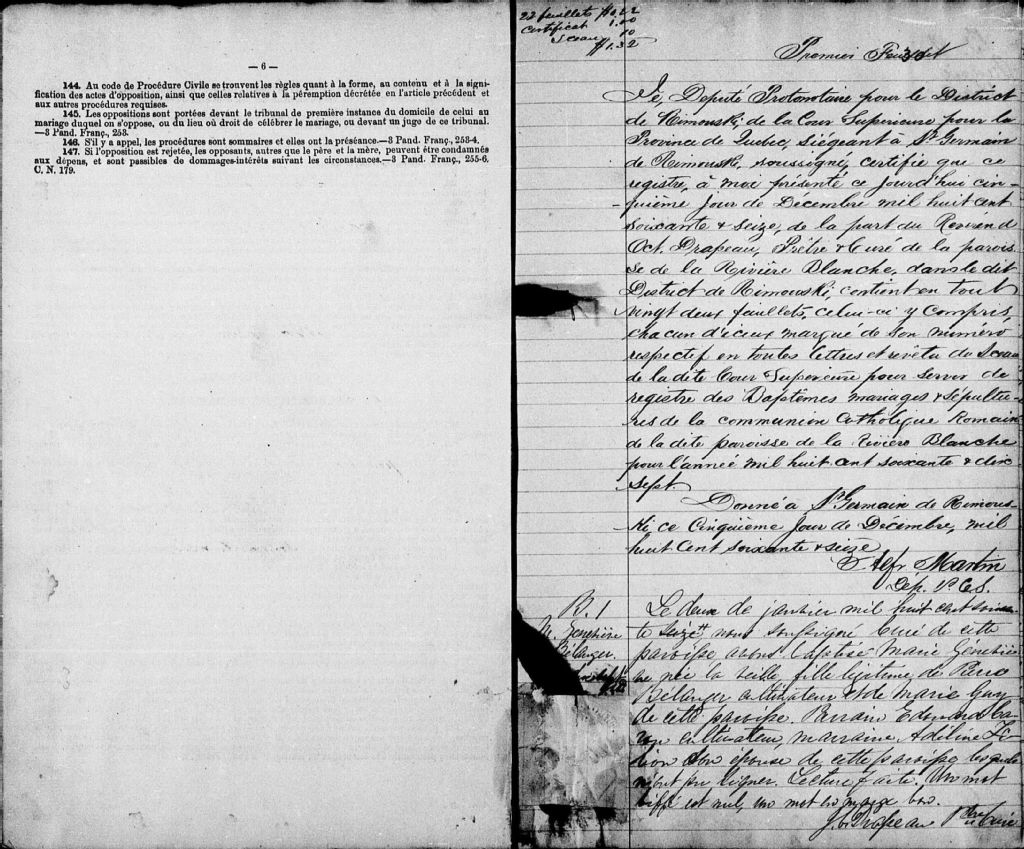 — 6 —
144. Au code de Procédure Civile se trouvent les règles quant à la forme, au contenu et à la signi-
fication des actes d'opposition, ainsi que celles relatives à la péremption décrétée en l'article précédent et
aux autres procédures requises.
145. Les oppositions sont portées devant le tribunal de première instance du domicile de celui au
mariage duquel on s'oppose, ou du lieu où droit de célébrer le mariage, ou devant un juge de ce tribunal.
—3 Pand. Franç., 253.
146. S'il y a appel, les procédures sont sommaires et elles ont la préséance.—3 Pand. Franç., 253-4.
147. Si l'opposition est rejetée, les opposants, autres que le père et la mère, peuvent être condamnés
aux dépens, et sont passibles de dommages-intérêts suivant les circonstances.—3 Pand. Franç., 255-6.
C. N. 179.
22 feuillets $0.22
Certificat 1.00
Sceau 10
$1.32
Premier Feuillet
Je, Député Protonotaire pour le District
de Rimouski, de la Cour Superieure pour la
Province de Quebec, siégeant à St Germain
de Rimouski, soussigné, certifie que ce
registre, à moi présenté ce jourd'hui cin-
-quième jour de Décembre mil huit cent
soixante & seize, de la part du Révérend
Oct. Drapeau, Prêtre & Curé de la parois
se de la Rivière Blanche, dans le dit
District de Rimouski, contient en tout
vingt deux feuillets, celui-ci y compris,
chacun d'iceux marqué de son numéro
respectif en toutes lettres et revêtu du Sceau
de la dite Cour Superieure pour servir de
registre des Baptêmes mariages & sépultu-
res de la communion Catholique Romain
de la dite paroisse de la Rivière Blanche
pour l'année mil huit cent soixante & dix
sept.
Donné à St Germain de Rimous-
ki ce Cinquième jour de Décembre, mil
huit Cent soixante & seize
Alfr Martin
Dép. P. C. S.
B. 1
M. Geneviève
Bélanger
Le deux de janvier mil huit cent soixan
te seize nous soussigné Curé de cette
paroisse avons baptisé Marie Géneviè
ve née la veille, fille légitime de Pierre
Bélanger cultivateur & de Marie Guy
de cette paroisse. Parrain Edouard Ca-
ron cultivateur, marraine Adeline
son épouse de cette paroisse lesquels
n'ont pu signer. Lecture faite. Un mot
biffé est nul, un mot en marge bon.
J. O. Drapeau Ptre Curé